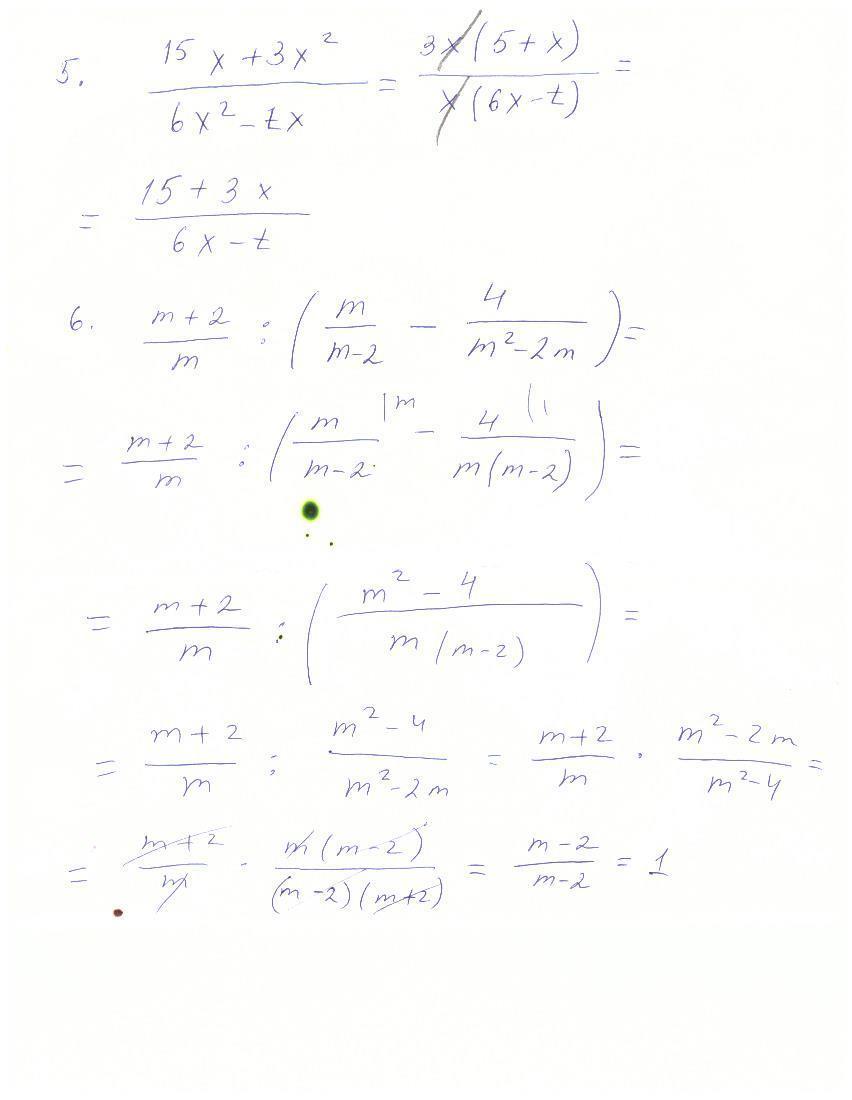 5. (15x + 3x²)/(6x² - tx) = 3x(5 + x)/x(6x - t) =
= (15 + 3x)/(6x - t)
6. (m + 2)/m : (m/(m-2) - 4/(m² - 2m)) =
= (m + 2)/m : (m/(m-2) |m - 4/m(m-2) (1) =
= (m + 2)/m : ((m² - 4)/m(m-2)) =
= (m + 2)/m : (m² - 4)/(m² - 2m) = (m+2)/m · (m² - 2m)/(m² - 4) =
= (m + 2)/m · m(m-2)/(m-2)(m+2) = (m-2)/(m-2) = 1